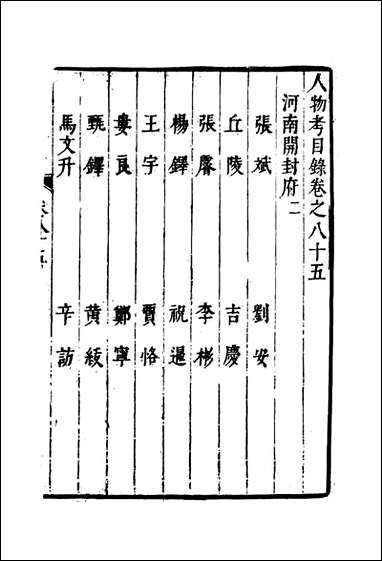 人物考目錄卷之八十五
河南開封府二
張斌 劉安
丘陵 吉慶
張馨 李彬
楊鐸 祝暹
王宇 賈恪
婁良 鄭寧
甄鐸 黃紱
馬文升 辛訪